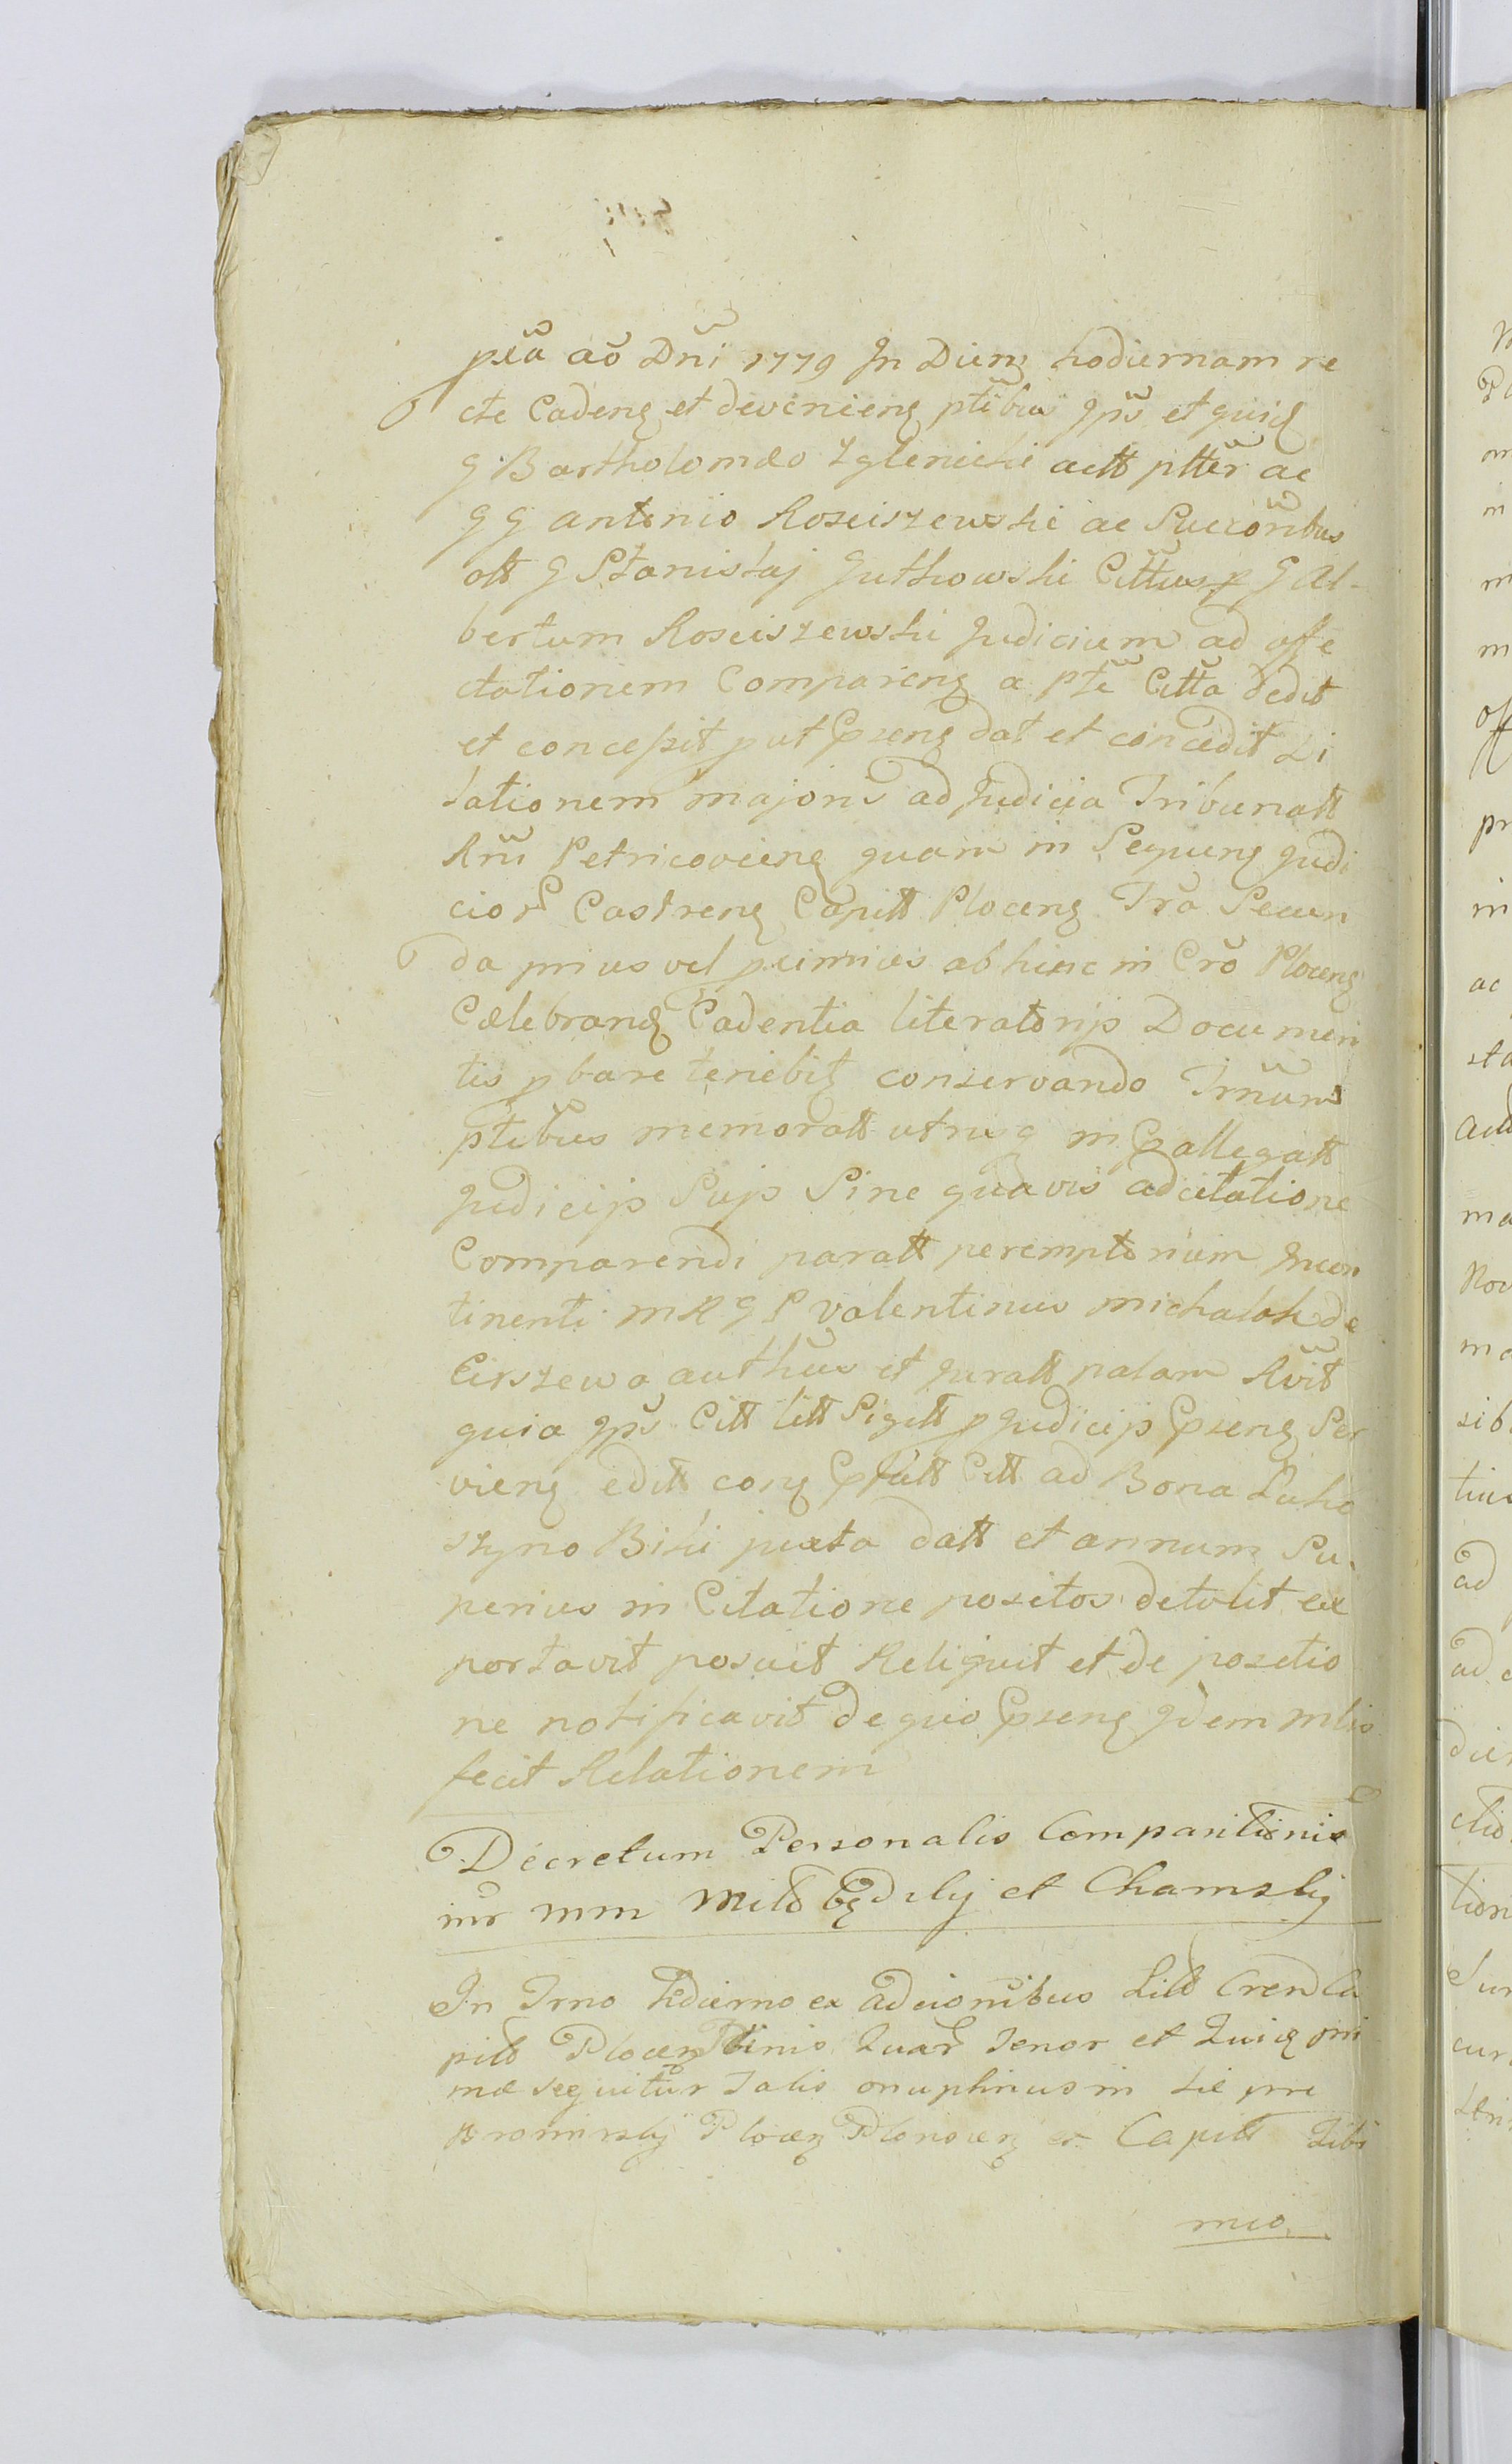 pxa aō Dñi 1779 In Diem hodiernam re
cte Cadenȝ et devenienȝ ptibus Ipīs et quidȝ
G Bartholomæo Zglenicki actt ptter ac
G G antonio Rosciszewski ac Succoribus
olt G Stanislaj Gutkowski Cittus p G Al-
bertum Rosciszewski Judicium ad affe
ctationem Comparenȝ a pte Citta dedit
et concessit put Ppsenȝ dat et concedit Di
lationem majoris ad Judicia Tribunatt
Rñi Petricovienȝ quam in Sequenȝ Judi
cior Castrenȝ Capitt Plocenȝ Tra Secun
da prius vel primius abhinc in Cro Plocenȝ
Cælebrandȝ Cadentia literatorijs Documen
tis pbare tenebitȝ conservando Trnum
ptibus memoratt utrisqȝ in Ppallegatt
Judicijs Suis Sine quavis adcitatione
Comparendi paratt peremptorium Incon
tinenti M R G P Valentinus Michalak de
Ciszewo authus et Juratt palam Rvit
quia Ips Citt litt Sigitt p Judicijs Ppsenȝ Ser
vienȝ editt cosqȝ Ppfatt Citt ad Bona Lako
szyno Biki juxta datt et annum Su-
perius in Citatione positos detulit ex
portavit posuit Reliquit et de positio
ne notificavit de quo Ppsenȝ Idem mlis
fecit Relationem
Decretum Personalis Comparitionis
inr mm Milo et Chamskij
In Trno hodierno ex adcionibus Litt Crend Ca
pitt Plocenȝ Quar Tenor et Quidȝ pri
mæ sequitur Talis onuphrius in
Bromirskij Plocenȝ Plonscenȝ Capitt Tibi
mio